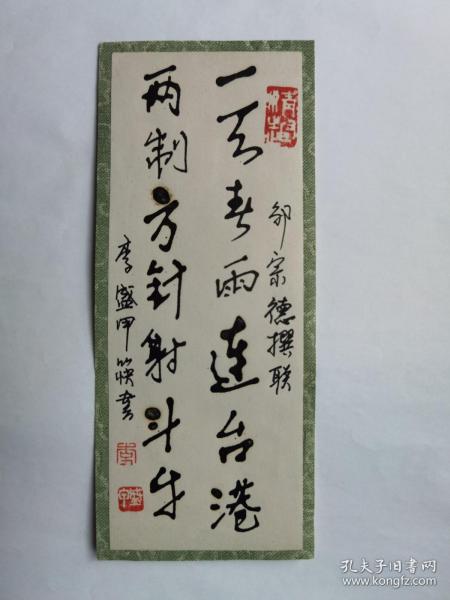 邹宗德撰联
一天春雨连台港
两制方针射斗牛
李盛甲
书
孔夫子旧书网
www.kongfz.com